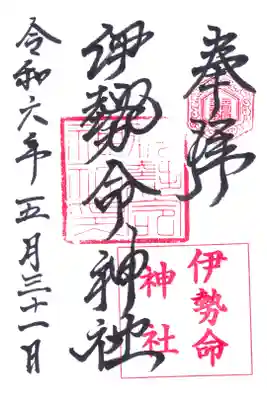 奉拝
伊勢命神社
伊勢命
神社
令和六年五月三十一日